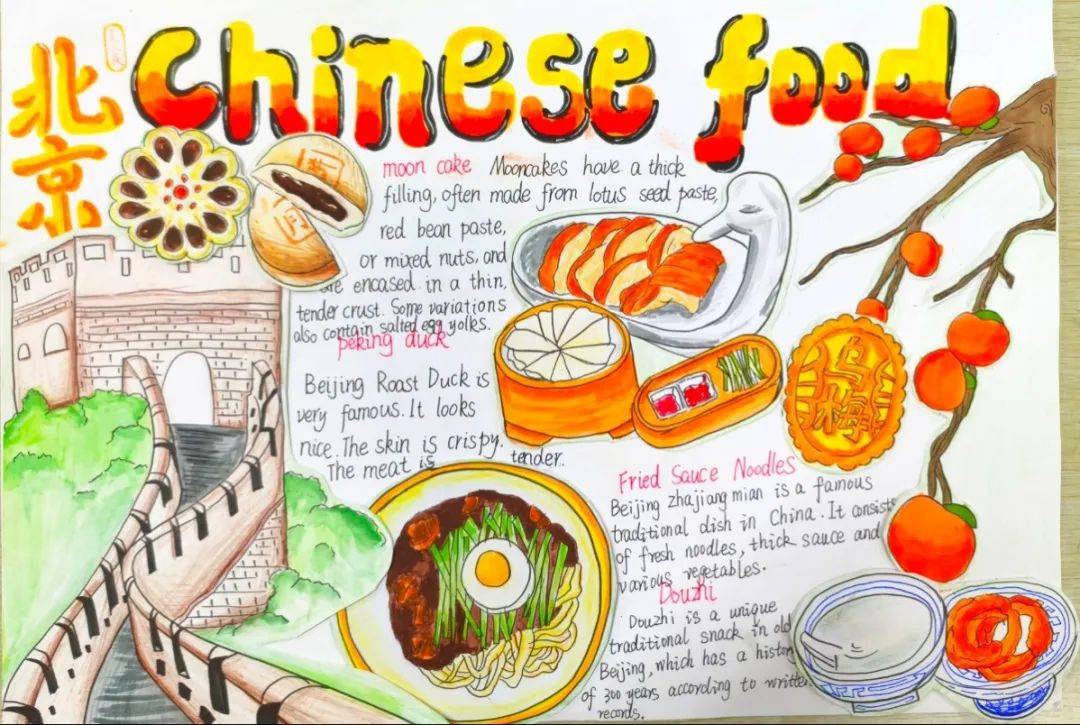 北京
Chinese food
moon cake Mooncakes have a thick
filling, often made from lotus seed paste,
red bean paste,
or mixed nuts, and
are encased in a thin,
tender crust. Some variations
also contain salted egg yolks.
peking duck
Beijing Roast Duck is
very famous. It looks
nice. The skin is crispy.
The meat is tender..
乌梅
Fried Sauce Noodles
Beijing zhajiang mian is a famous
traditional dish in China. It consists
of fresh noodles, thick sauce and
various vegetables.
Douzhi
Douzhi is a unique
traditional snack in old
Beijing, which has a history
of 300 years according to written
records.